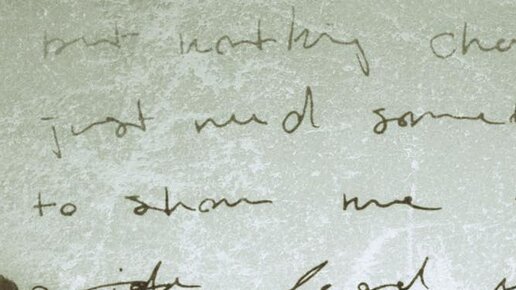 but nothing cha
just need some
to show me